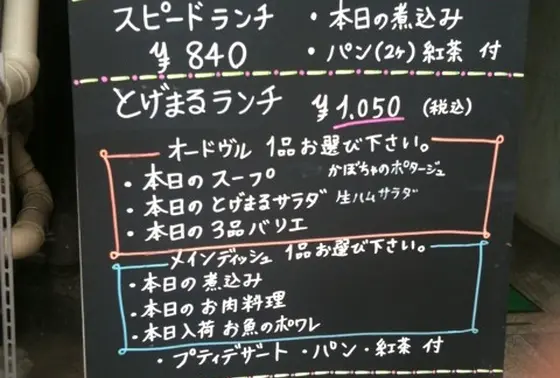 スピードランチ ・本日の煮込み
¥840 ・パン(2ヶ)紅茶 付
とげまるランチ ¥1,050 (税込)
オードヴル 1品お選び下さい。
・本日のスープ かぼちゃのポタージュ
・本日のとげまるサラダ 生ハムサラダ
・本日の3品バリエ
メインディッシュ 1品お選び下さい。
・本日の煮込み
・本日のお肉料理
・本日入荷 お魚のポワレ
・プティデザート・パン・紅茶 付